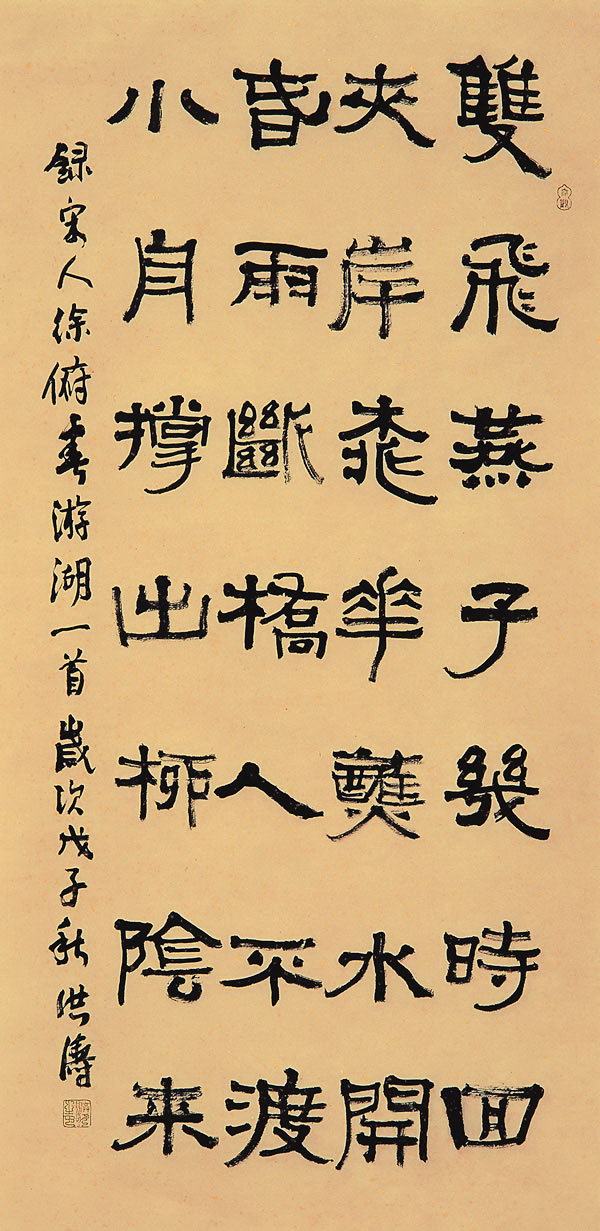 雙飛燕子幾時回
夾岸桃華蘸水開
春雨斷橋人不渡
小舟撐出柳陰来
録宋人徐俯春游湖一首歲次戊子秋洪濤